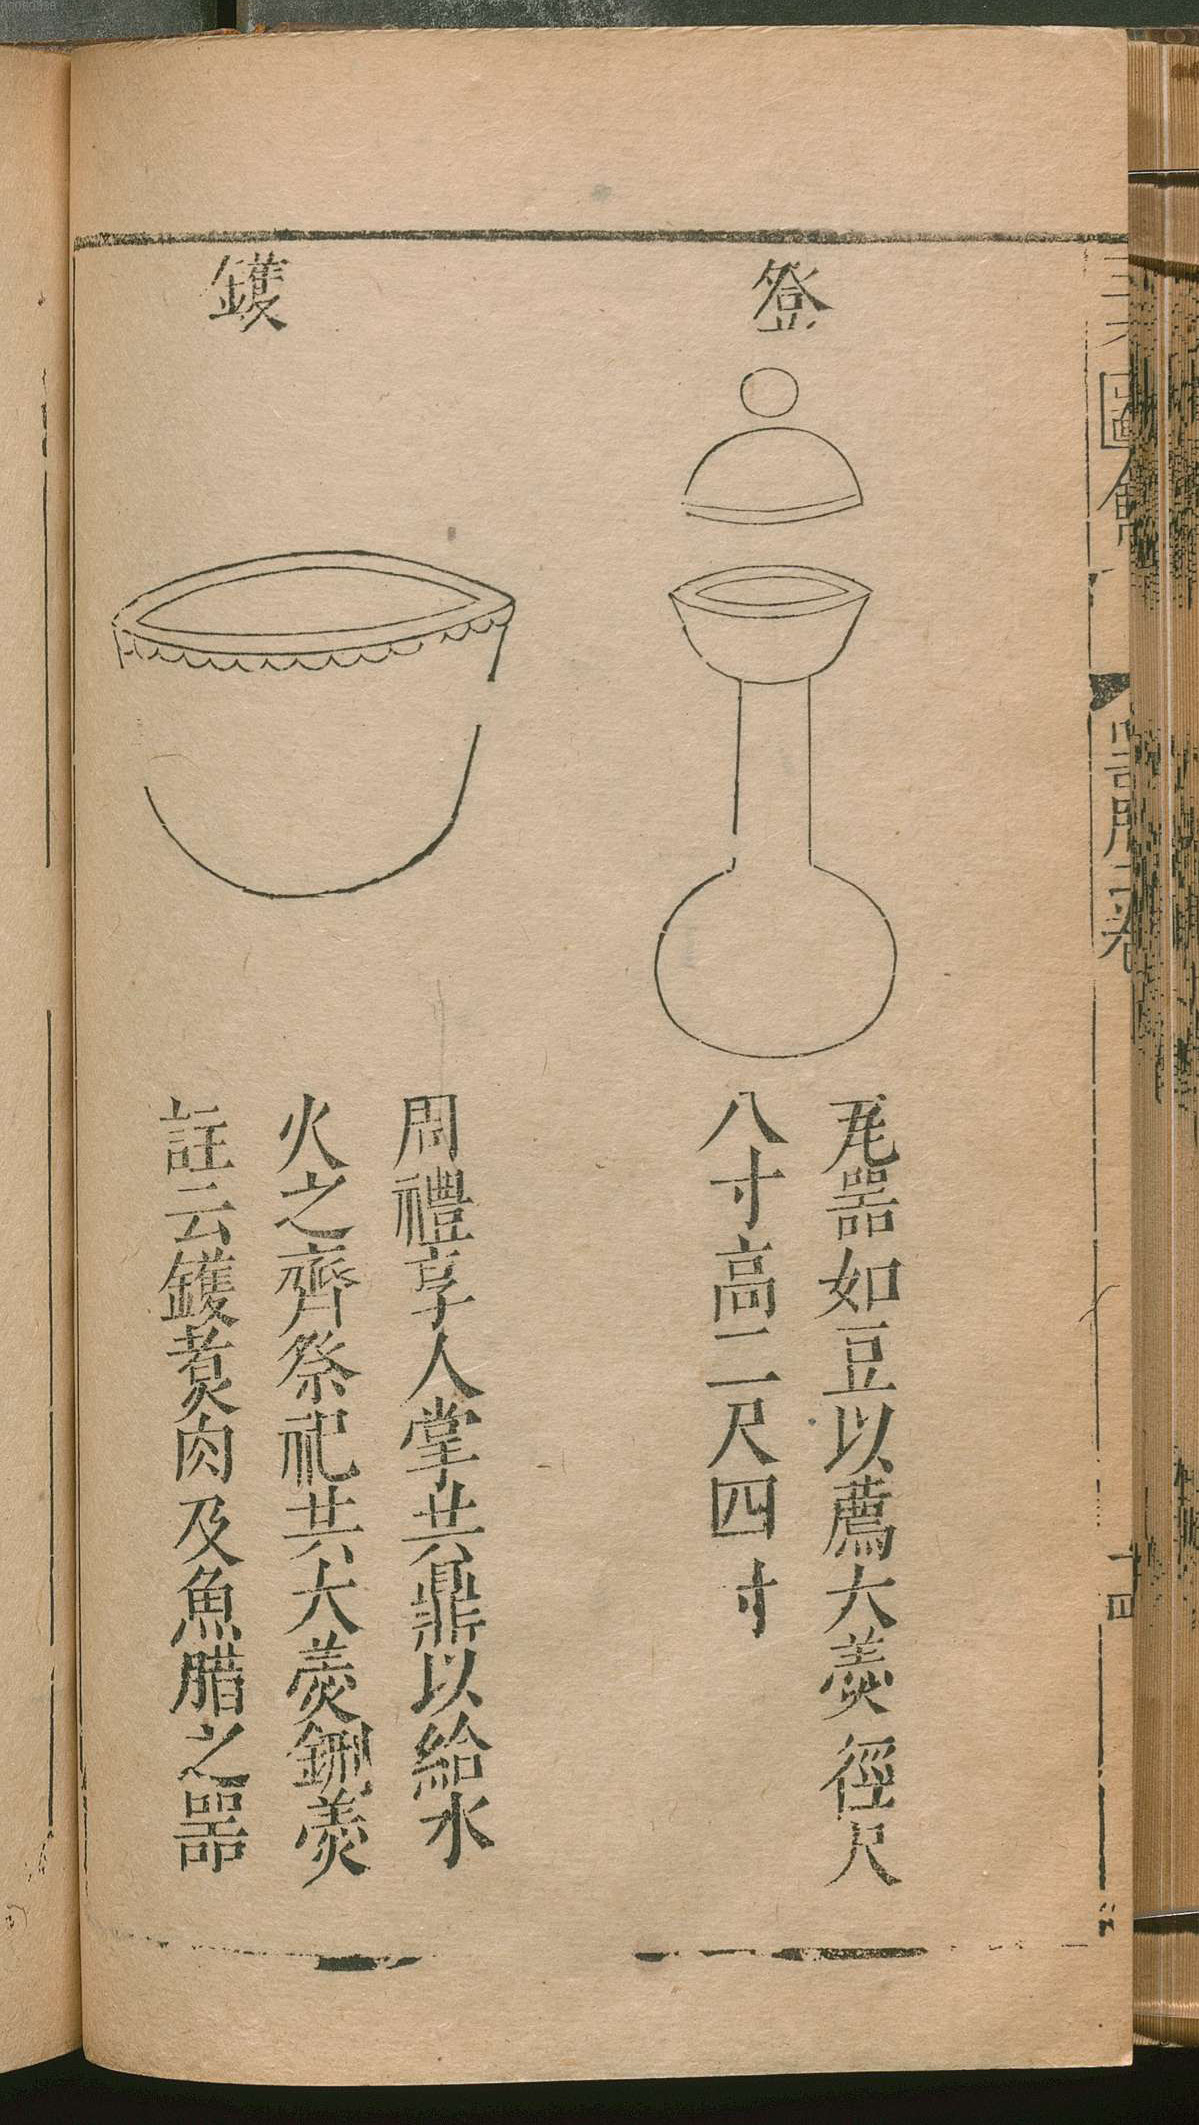 登
瓦器如豆以薦大羹徑尺
八寸高二尺四寸
鑊
周禮亨人掌共鼎以給水
火之齊祭祀共大羹鉶羹
註云鑊煮肉及魚腊之器
十四